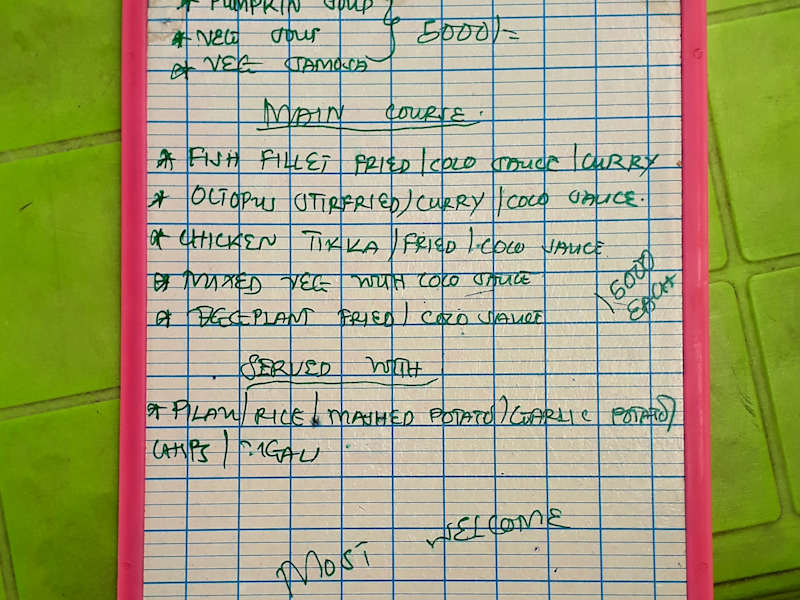 * PUMPKIN SOUP
* VEG SOUP 5000/=
* VEG SAMOSA
MAIN COURSE.
* FISH FILLET FRIED / COCO SAUCE / CURRY
* OCTOPUS STIRFRIED / CURRY / COCO SAUCE.
* CHICKEN TIKKA / FRIED / COCO SAUCE
* MIXED VEG WITH COCO SAUCE
* EGGPLANT FRIED / COCO SAUCE
15000
EACH
SERVED WITH
* PILAW / RICE / MASHED POTATO / GARLIC POTATO /
CHIPS / UGALI
MOST WELCOME